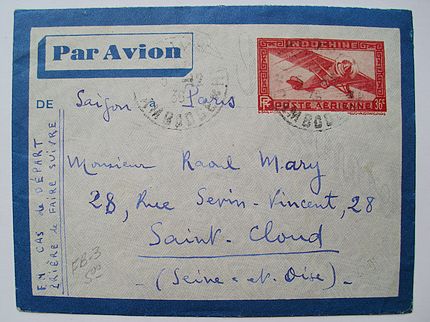 Par Avion
INDOCHINE
RF POSTE AÉRIENNE 36c
CAMBODGE
DE Saïgon à Paris
Monsieur Raoul Mary
28, Rue Sevin-Vincent, 28
Saint-Cloud
(Seine-et-Oise)
EN CAS de DÉPART
PRIÈRE de FAIRE SUIVRE
EB-3
500